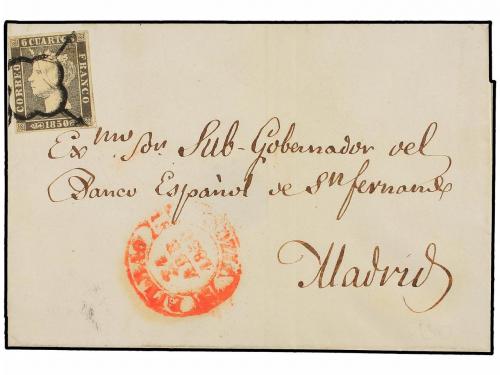 CORREOS 6 CUARTOS FRANCO
1850
Exmo Sor Sub-Gobernador del
Banco Español de Sn fernando
Madrid